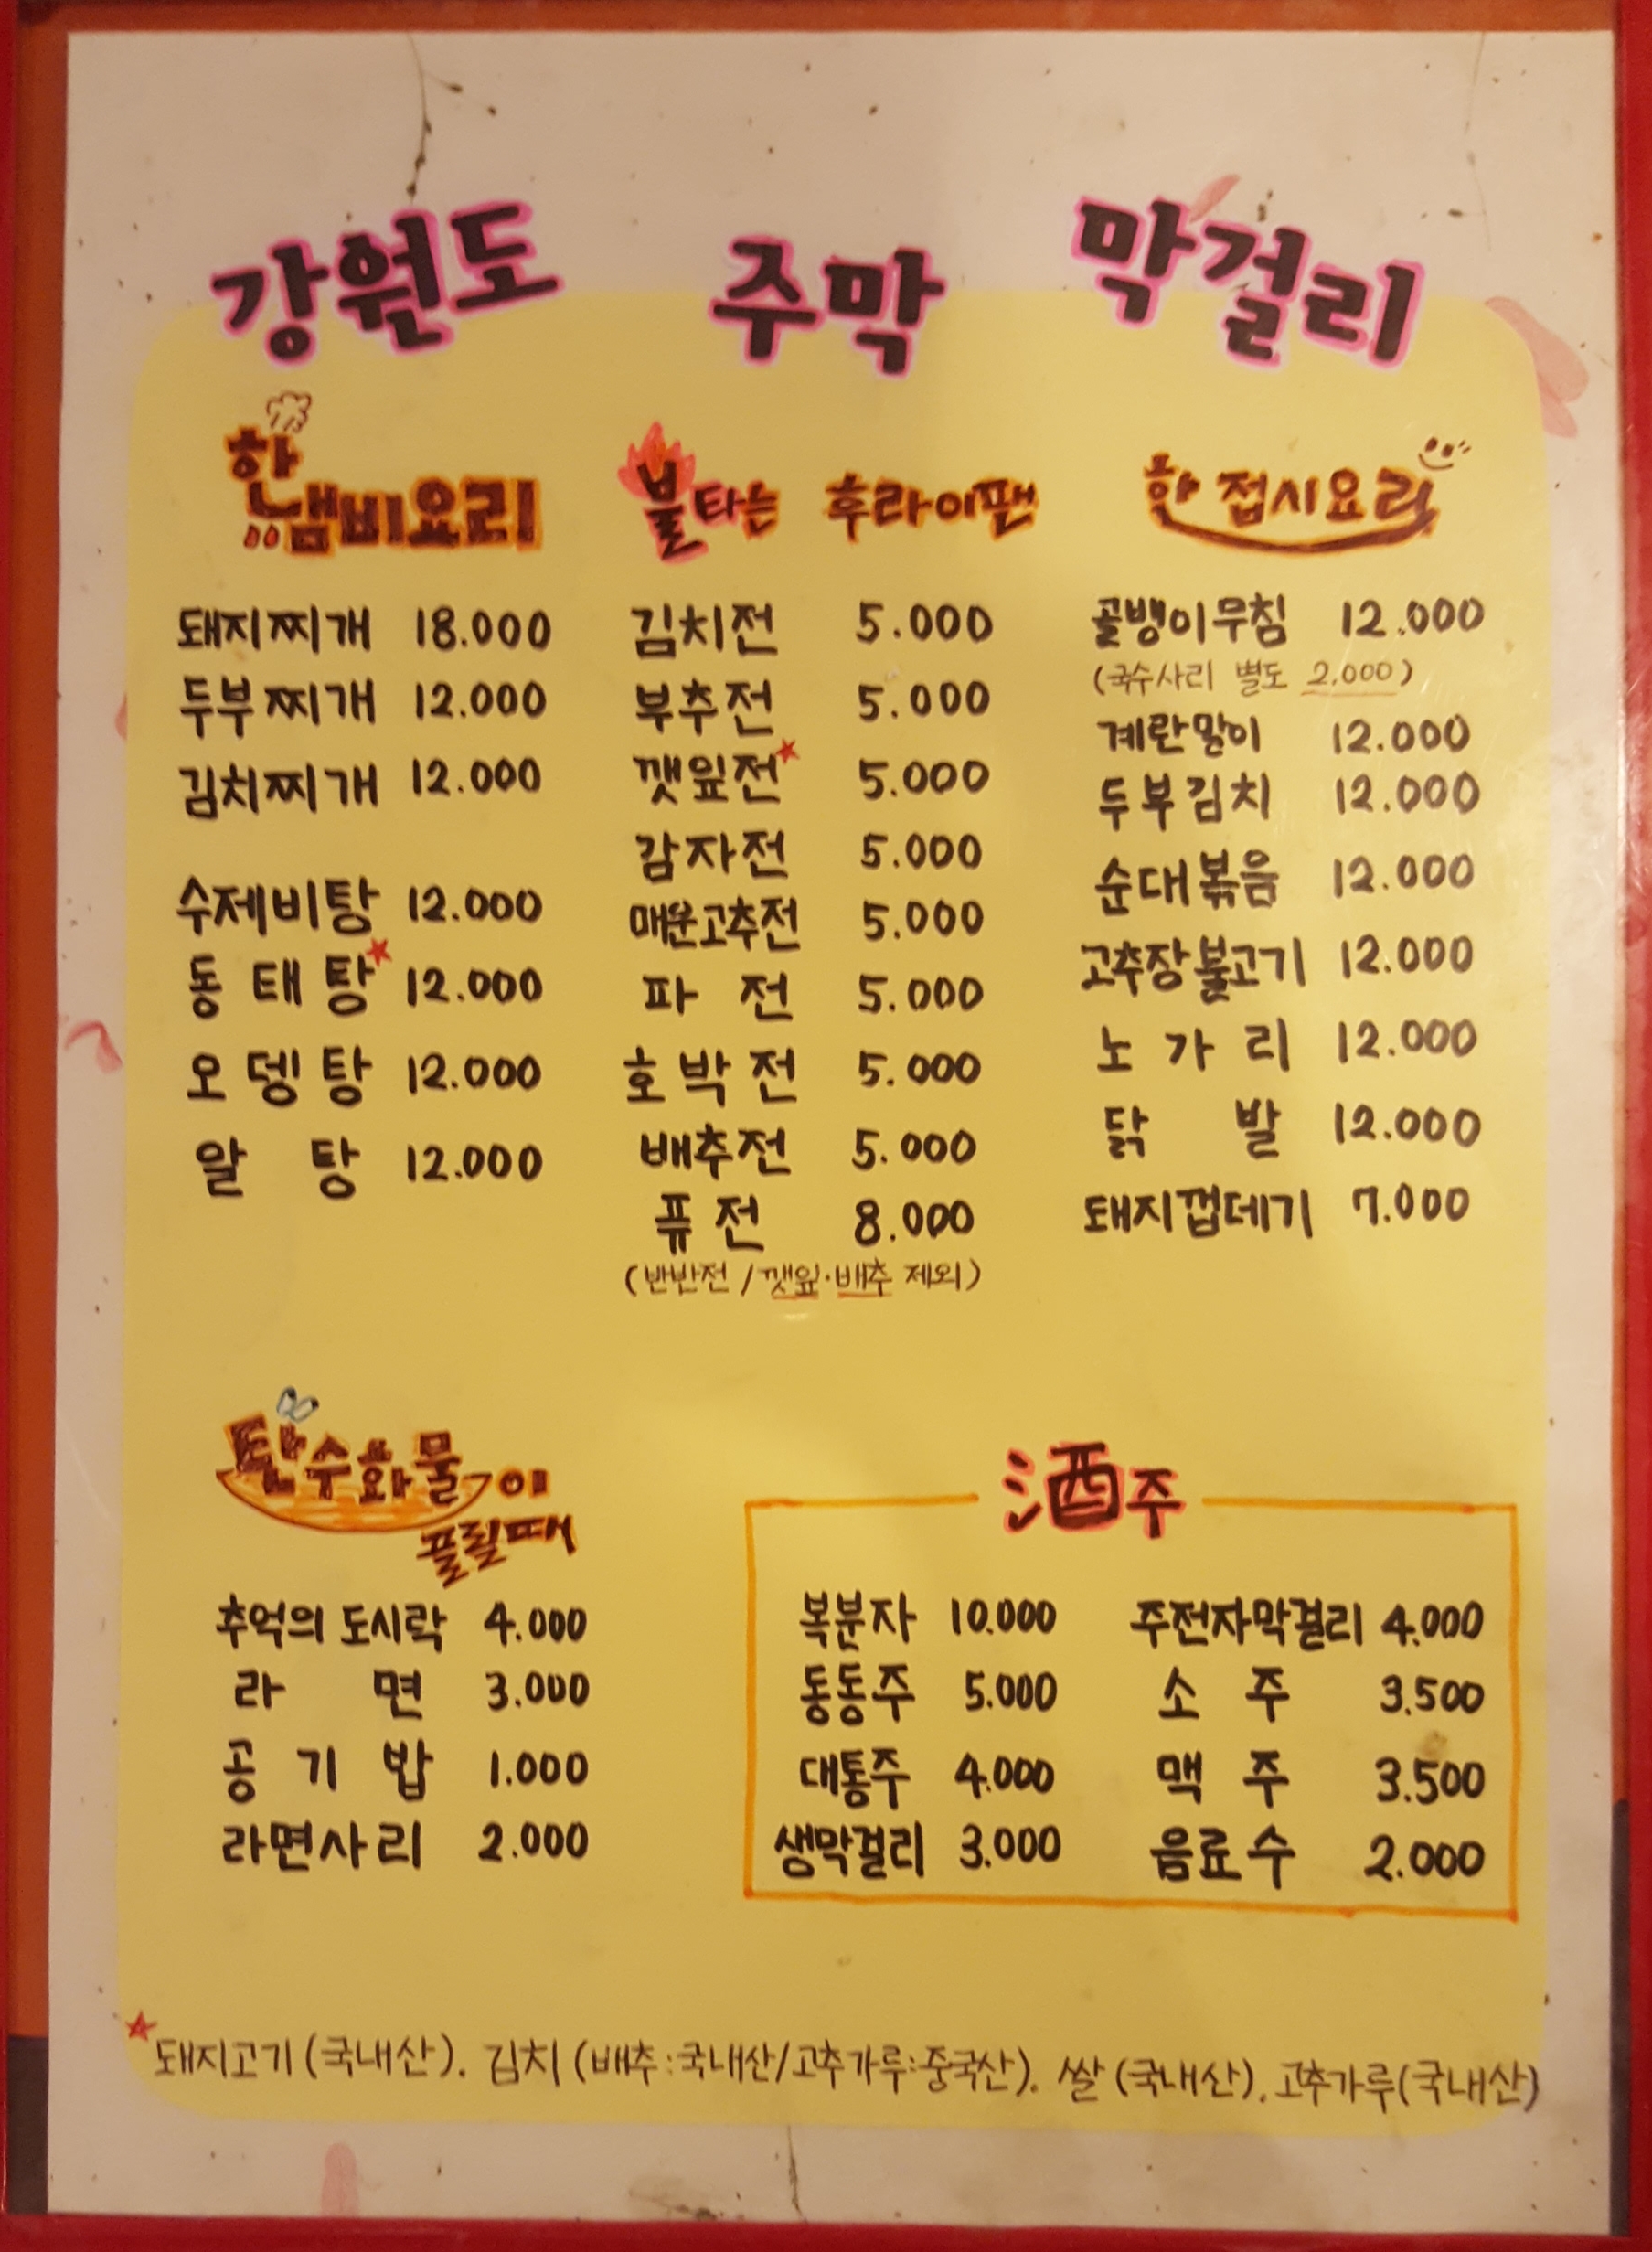 강원도 주막 막걸리
한냄비요리
돼지찌개 18.000
두부찌개 12.000
김치찌개 12.000
수제비탕 12.000
동태탕 12.000
오뎅탕 12.000
알탕 12.000
불타는 후라이팬
김치전 5.000
부추전 5.000
깻잎전 5.000
감자전 5.000
매운고추전 5.000
파전 5.000
호박전 5.000
배추전 5.000
퓨전 8.000
(반반전 / 깻잎·배추 제외)
한 접시요리
골뱅이무침 12.000
(국수사리 별도 2.000)
계란말이 12.000
두부김치 12.000
순대볶음 12.000
고추장불고기 12.000
노가리 12.000
닭발 12.000
돼지껍데기 7.000
탄수화물이
풀릴때
추억의 도시락 4.000
라면 3.000
공기밥 1.000
라면사리 2.000
酒주
복분자 10.000
동동주 5.000
대통주 4.000
생막걸리 3.000
주전자막걸리 4.000
소주 3.500
맥주 3.500
음료수 2.000
돼지고기(국내산). 김치(배추:국내산/고추가루:중국산). 쌀(국내산). 고추가루(국내산)